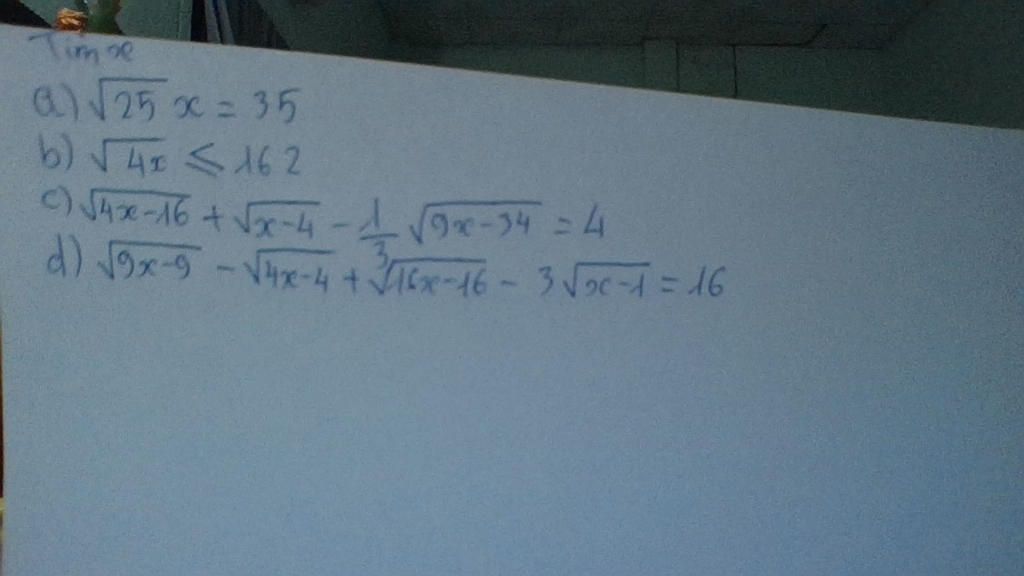 Tìm x
a) √25 x = 35
b) √4x ⩽ 162
c) √4x-16 + √x-4 - 1/3 √9x-34 = 4
d) √9x-9 - √4x-4 + √16x-16 - 3√x-1 = 16